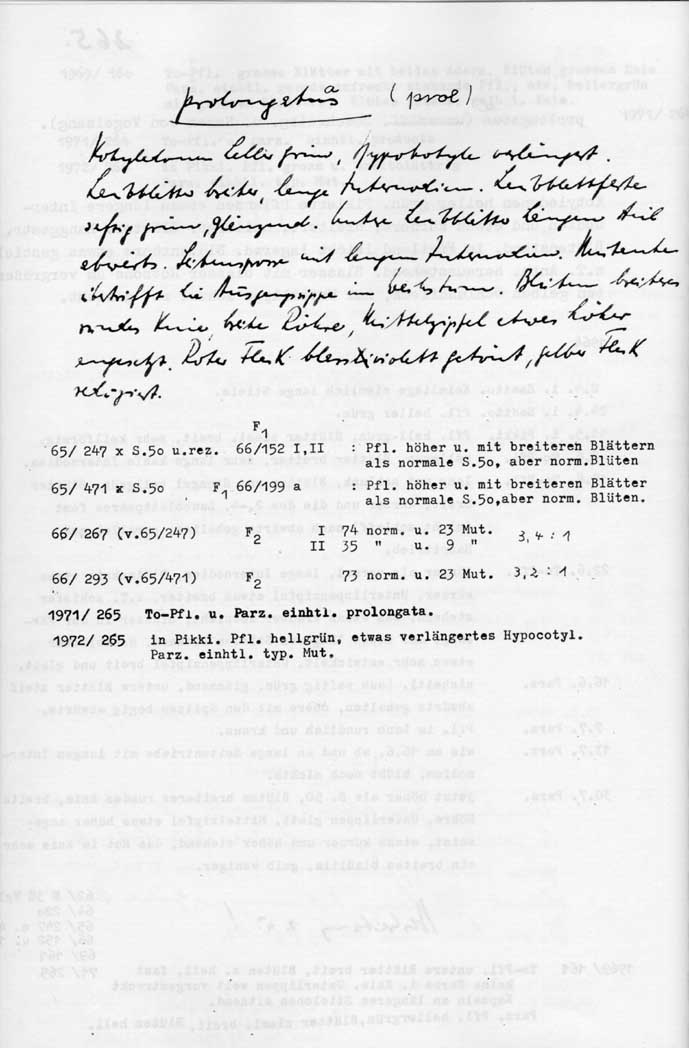 prolongata (prol)
Kotyledonen heller grün, Hypokotyle verlängert.
Laubblätter breiter, lange Internodien. Laubblattfarbe
saftig grün, glänzend. Untere Laubblätter hängen steil
abwärts. Seitensprosse mit langen Internodien. Mutante
übertrifft die Ausgangssippe im Wachstum. Blüten breiteres
rundes Knie, breite Röhre, Mittelzipfel etwas höher
angesetzt. Roter Fleck blass violett getönt, gelber Fleck
reduziert.
F1
65/ 247 x S.5o u.rez. 66/152 I,II : Pfl. höher u. mit breiteren Blättern
als normale S.5o, aber norm.Blüten
65/ 471 x S.5o F1 66/199 a : Pfl. höher u. mit breiteren Blätter
als normale S.5o,aber norm. Blüten.
66/ 267 (v.65/247) F2 I 74 norm. u. 23 Mut. 3,4 : 1
II 35 " u. 9 "
66/ 293 (v.65/471) F2 73 norm. u. 23 Mut. 3,2 : 1
1971/ 265 To-Pfl. u. Parz. einhtl. prolongata.
1972/ 265 in Pikki. Pfl. hellgrün, etwas verlängertes Hypocotyl.
Parz. einhtl. typ. Mut.